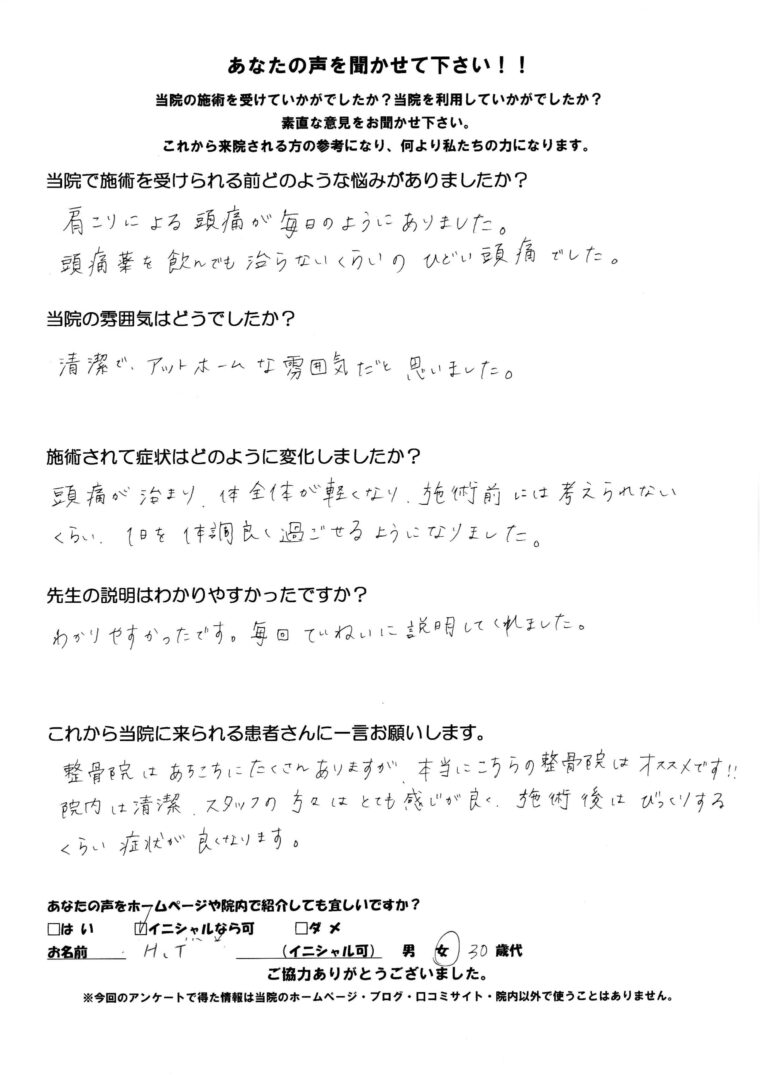 あなたの声を聞かせて下さい！！
当院の施術を受けていかがでしたか？当院を利用していかがでしたか？
素直な意見をお聞かせ下さい。
これから来院される方の参考になり、何より私たちの力になります。
当院で施術を受けられる前どのような悩みがありましたか？
肩こりによる頭痛が毎日のようにありました。
頭痛薬を飲んでも治らないくらいのひどい頭痛でした。
当院の雰囲気はどうでしたか？
清潔で、アットホームな雰囲気だと思いました。
施術されて症状はどのように変化しましたか？
頭痛が治まり、体全体が軽くなり、施術前には考えられない
くらい、1日を体調良く過ごせるようになりました。
先生の説明はわかりやすかったですか？
わかりやすかったです。毎回ていねいに説明してくれました。
これから当院に来られる患者さんに一言お願いします。
整骨院はあちこちにたくさんありますが、本当にこちらの整骨院はオススメです!!
院内は清潔、スタッフの方々はとても感じが良く、施術後はびっくりする
くらい症状が良くなります。
あなたの声をホームページや院内で紹介しても宜しいですか？
□はい ☑イニシャルなら可 □ダメ
お名前 H.T （イニシャル可） 男 女 30歳代
ご協力ありがとうございました。
※今回のアンケートで得た情報は当院のホームページ・ブログ・口コミサイト・院内以外で使うことはありません。